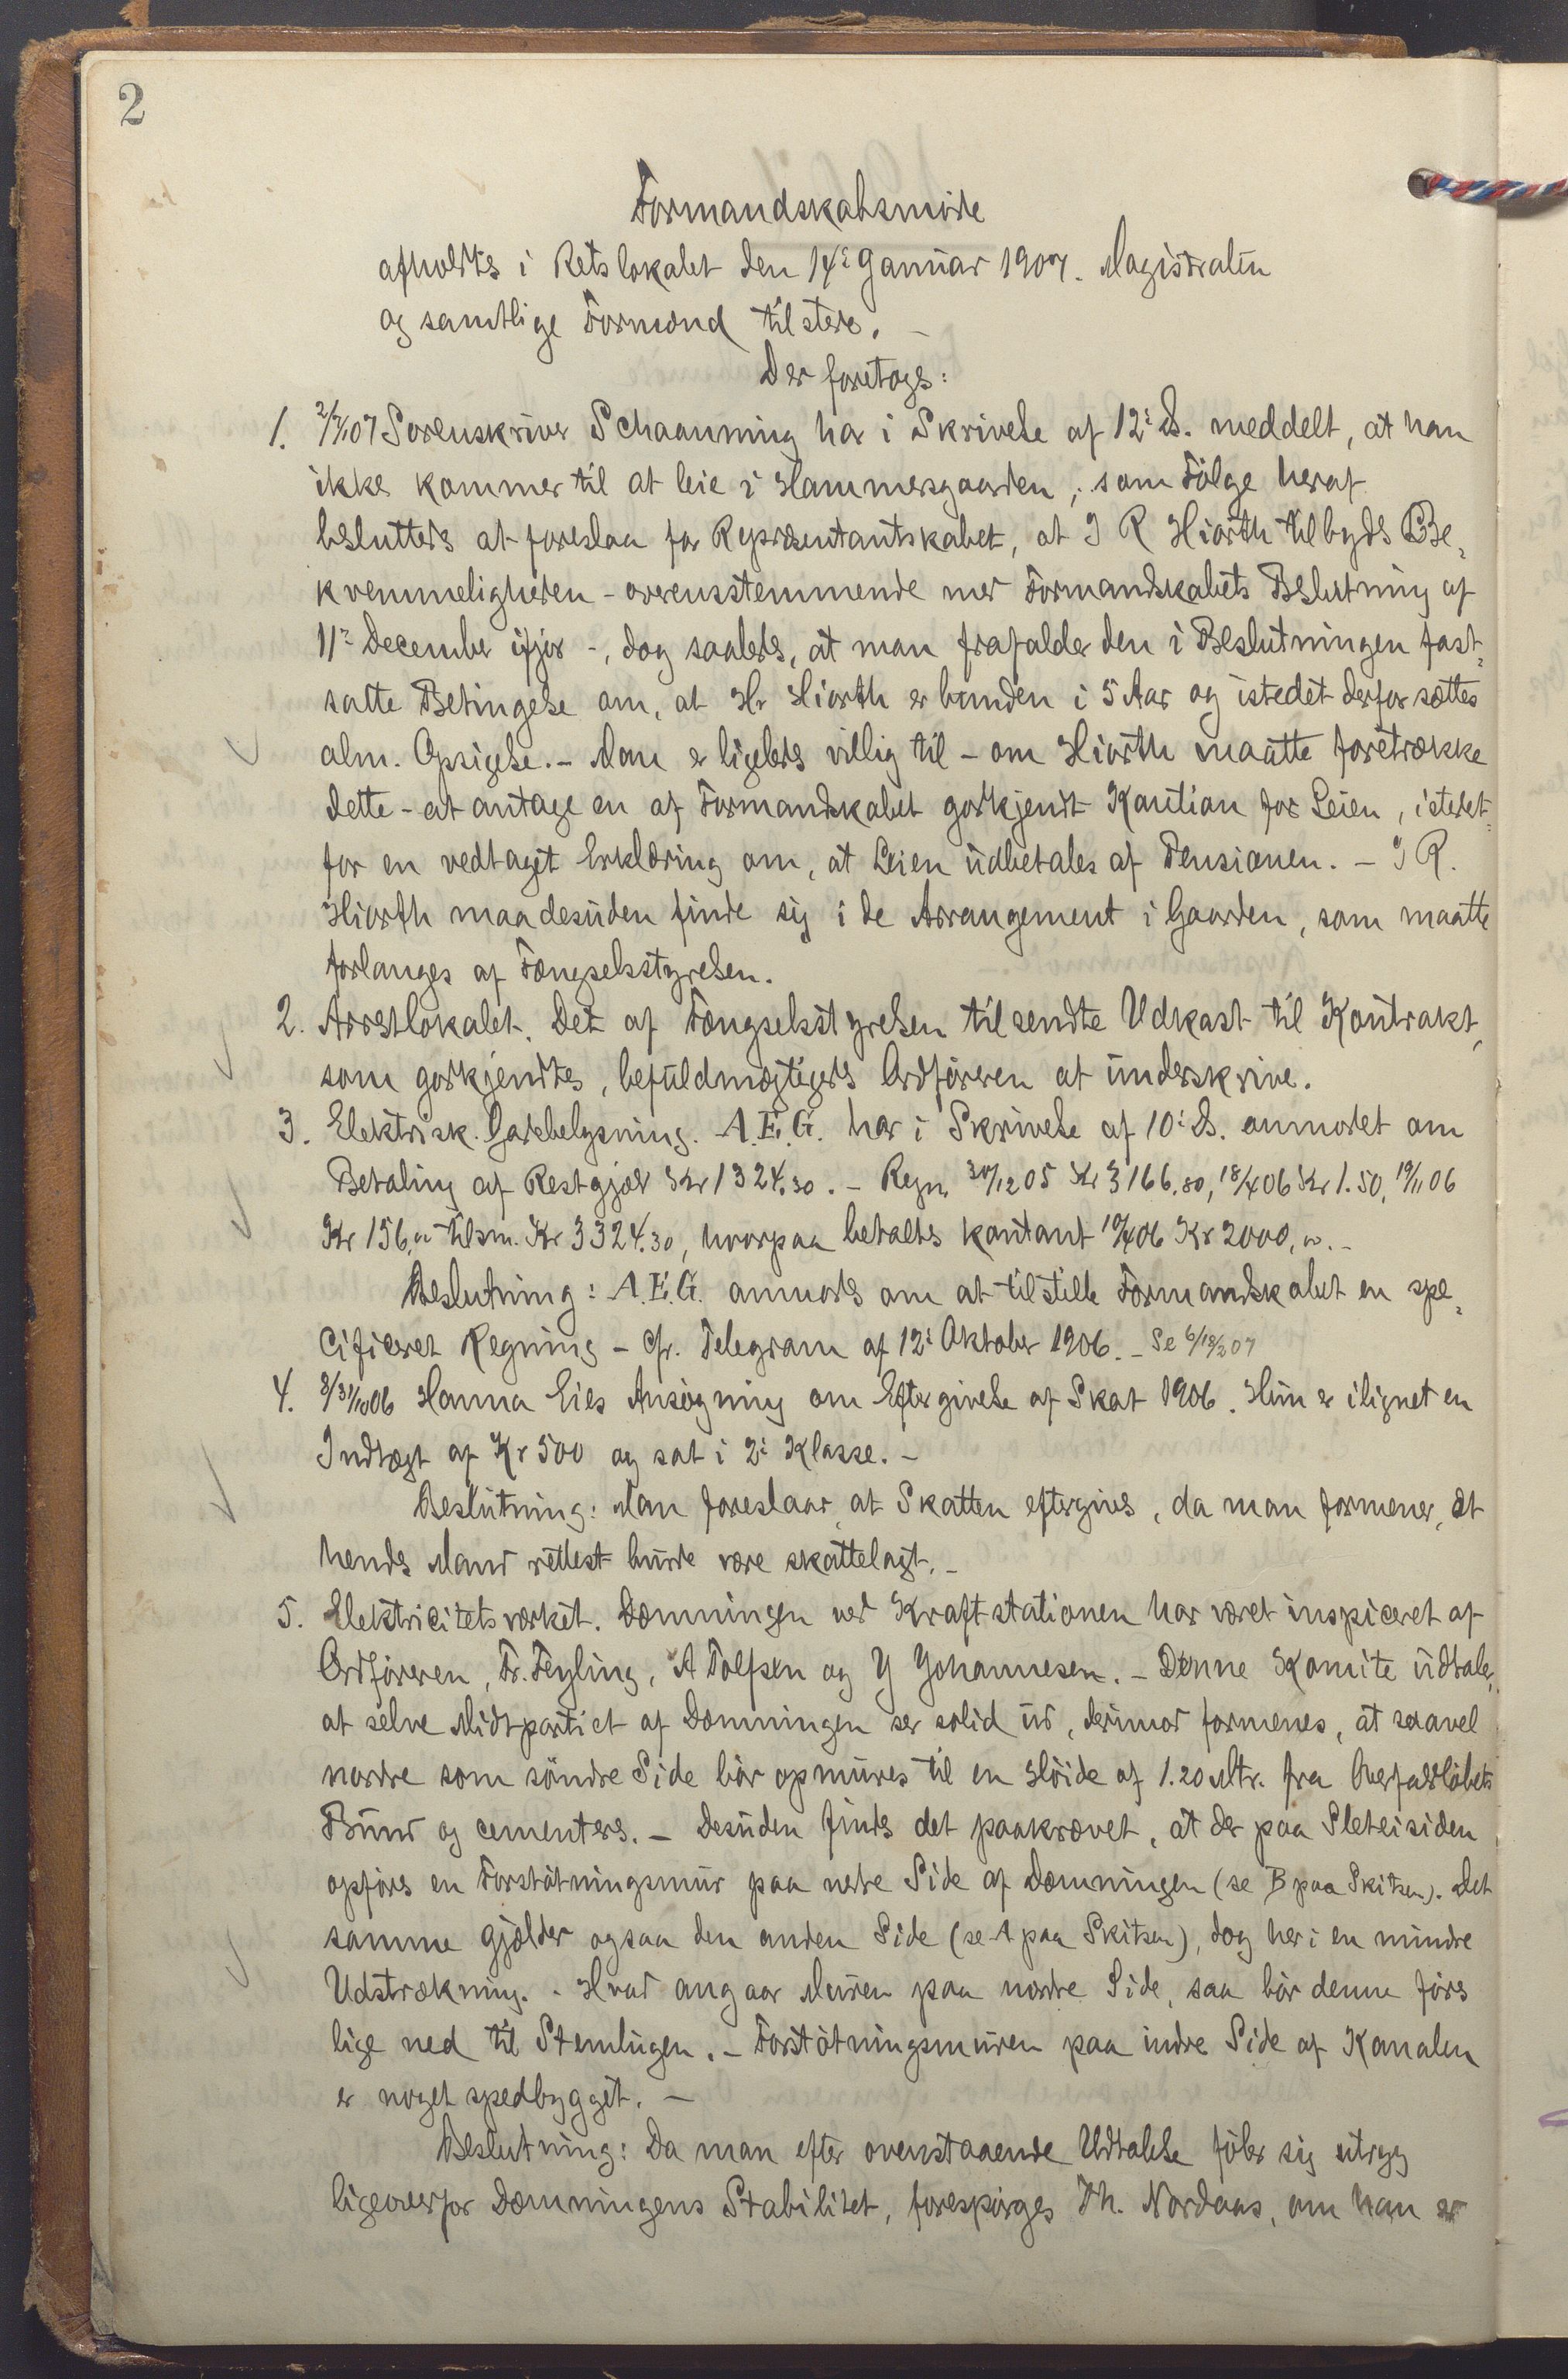 2
Formandskabsmøde
afholdtes i Retslokalet den 14de Januar 1907. Magistraten
og samtlige Formænd tilstede. –
Der foretoges:
1. 2/7/1 07 Sorenskriver Schaanning har i Skrivelse af 12te ds. meddelt, at han
ikke kommer til at leie i Hammersgaarden; som Følge heraf
besluttedes at foreslaa for Repræsentantskabet, at J R Hiorth tilbydes Be-
kvemmeligheden – overensstemmende med Formandskabets Beslutning af
11te December ifjor –, dog saaledes, at man frafalder den i Beslutningen fast-
satte Betingelse om, at Hr Hiorth er bunden i 5 Aar og istedet derfor sættes
alm. Opsigelse. – Man er ligeledes villig til – om Hiorth maatte foretrække
dette – at antage en af Formandskabet godkjendt Kaution for Leien, istedet-
for en vedtaget Erklæring om, at Leien udbetales af Pensionen. – J R.
Hiorth maa desuden finde sig i de Arrangement i Gaarden, som maatte
forlanges af Fængselsstyrelsen.
2. Arrestlokalet. Det af Fængselsstyrelsen tilsendte Udkast til Kontrakt,
som godkjendtes, befuldmægtigedes Ordføreren at underskrive.
3. Elektrisk Gadebelysning. A.E.G. har i Skrivelse af 10de ds. anmodet om
Betaling af Restgjæld Kr 1324.30. – Regn. 30/12 05 Kr 3166.80, 18/4 06 Kr 1.50, 19/11 06
Kr 156,00 tilsm. Kr 3324.30, hvorpaa betaltes kontant 10/4 06 Kr 2000,00. –
Beslutning: A.E.G. anmodes om at tilstille Formandskabet en spe-
cificeret Regning – Cfr. Telegram af 12te Oktober 1906. – Se 6/18/2 07
4. 8/31/10 06 Hanna Eies Ansøgning om Eftergivelse af Skat 1906. Hun er ilignet en
Indtægt af Kr 500 og sat i 2de Klasse. –
Beslutning: Man foreslaar, at Skatten eftergives, da man formener, at
hendes Mand rettest burde være skattelagt. –
5. Elektricitetsværket. Dæmningen ved Kraftstationen har været inspiceret af
Ordføreren, Fr. Feyling, A Tolfsen og Y Yohannesen. – Denne Komite udtaler,
at selve Midtpartiet af Dæmningen ser solid ud, derimod formenes, at saavel
nordre som søndre Side bør opmures til en Høide af 1.20 Mtr. fra Overfaldløbets
Bund og cementeres. – Desuden findes det paakrævet, at der paa Sleteisiden
opføres en Forstøtningsmur paa nedre Side af Dæmningen (se B paa Skitsen). Det
samme gjælder ogsaa den anden Side (se A paa Skitsen), dog her i en mindre
Udstrækning. – Hvad angaar Muren paa nordre Side, saa bør denne føres
lige ned til Stemlugen. – Forstøtningsmuren paa indre Side af Kanalen
er noget spedbygget. –
Beslutning: Da man efter ovenstaaende Udtalelse føler sig utryg
ligeoverfor Dæmningens Stabilitet, forespørges Th. Nordaas, om han er